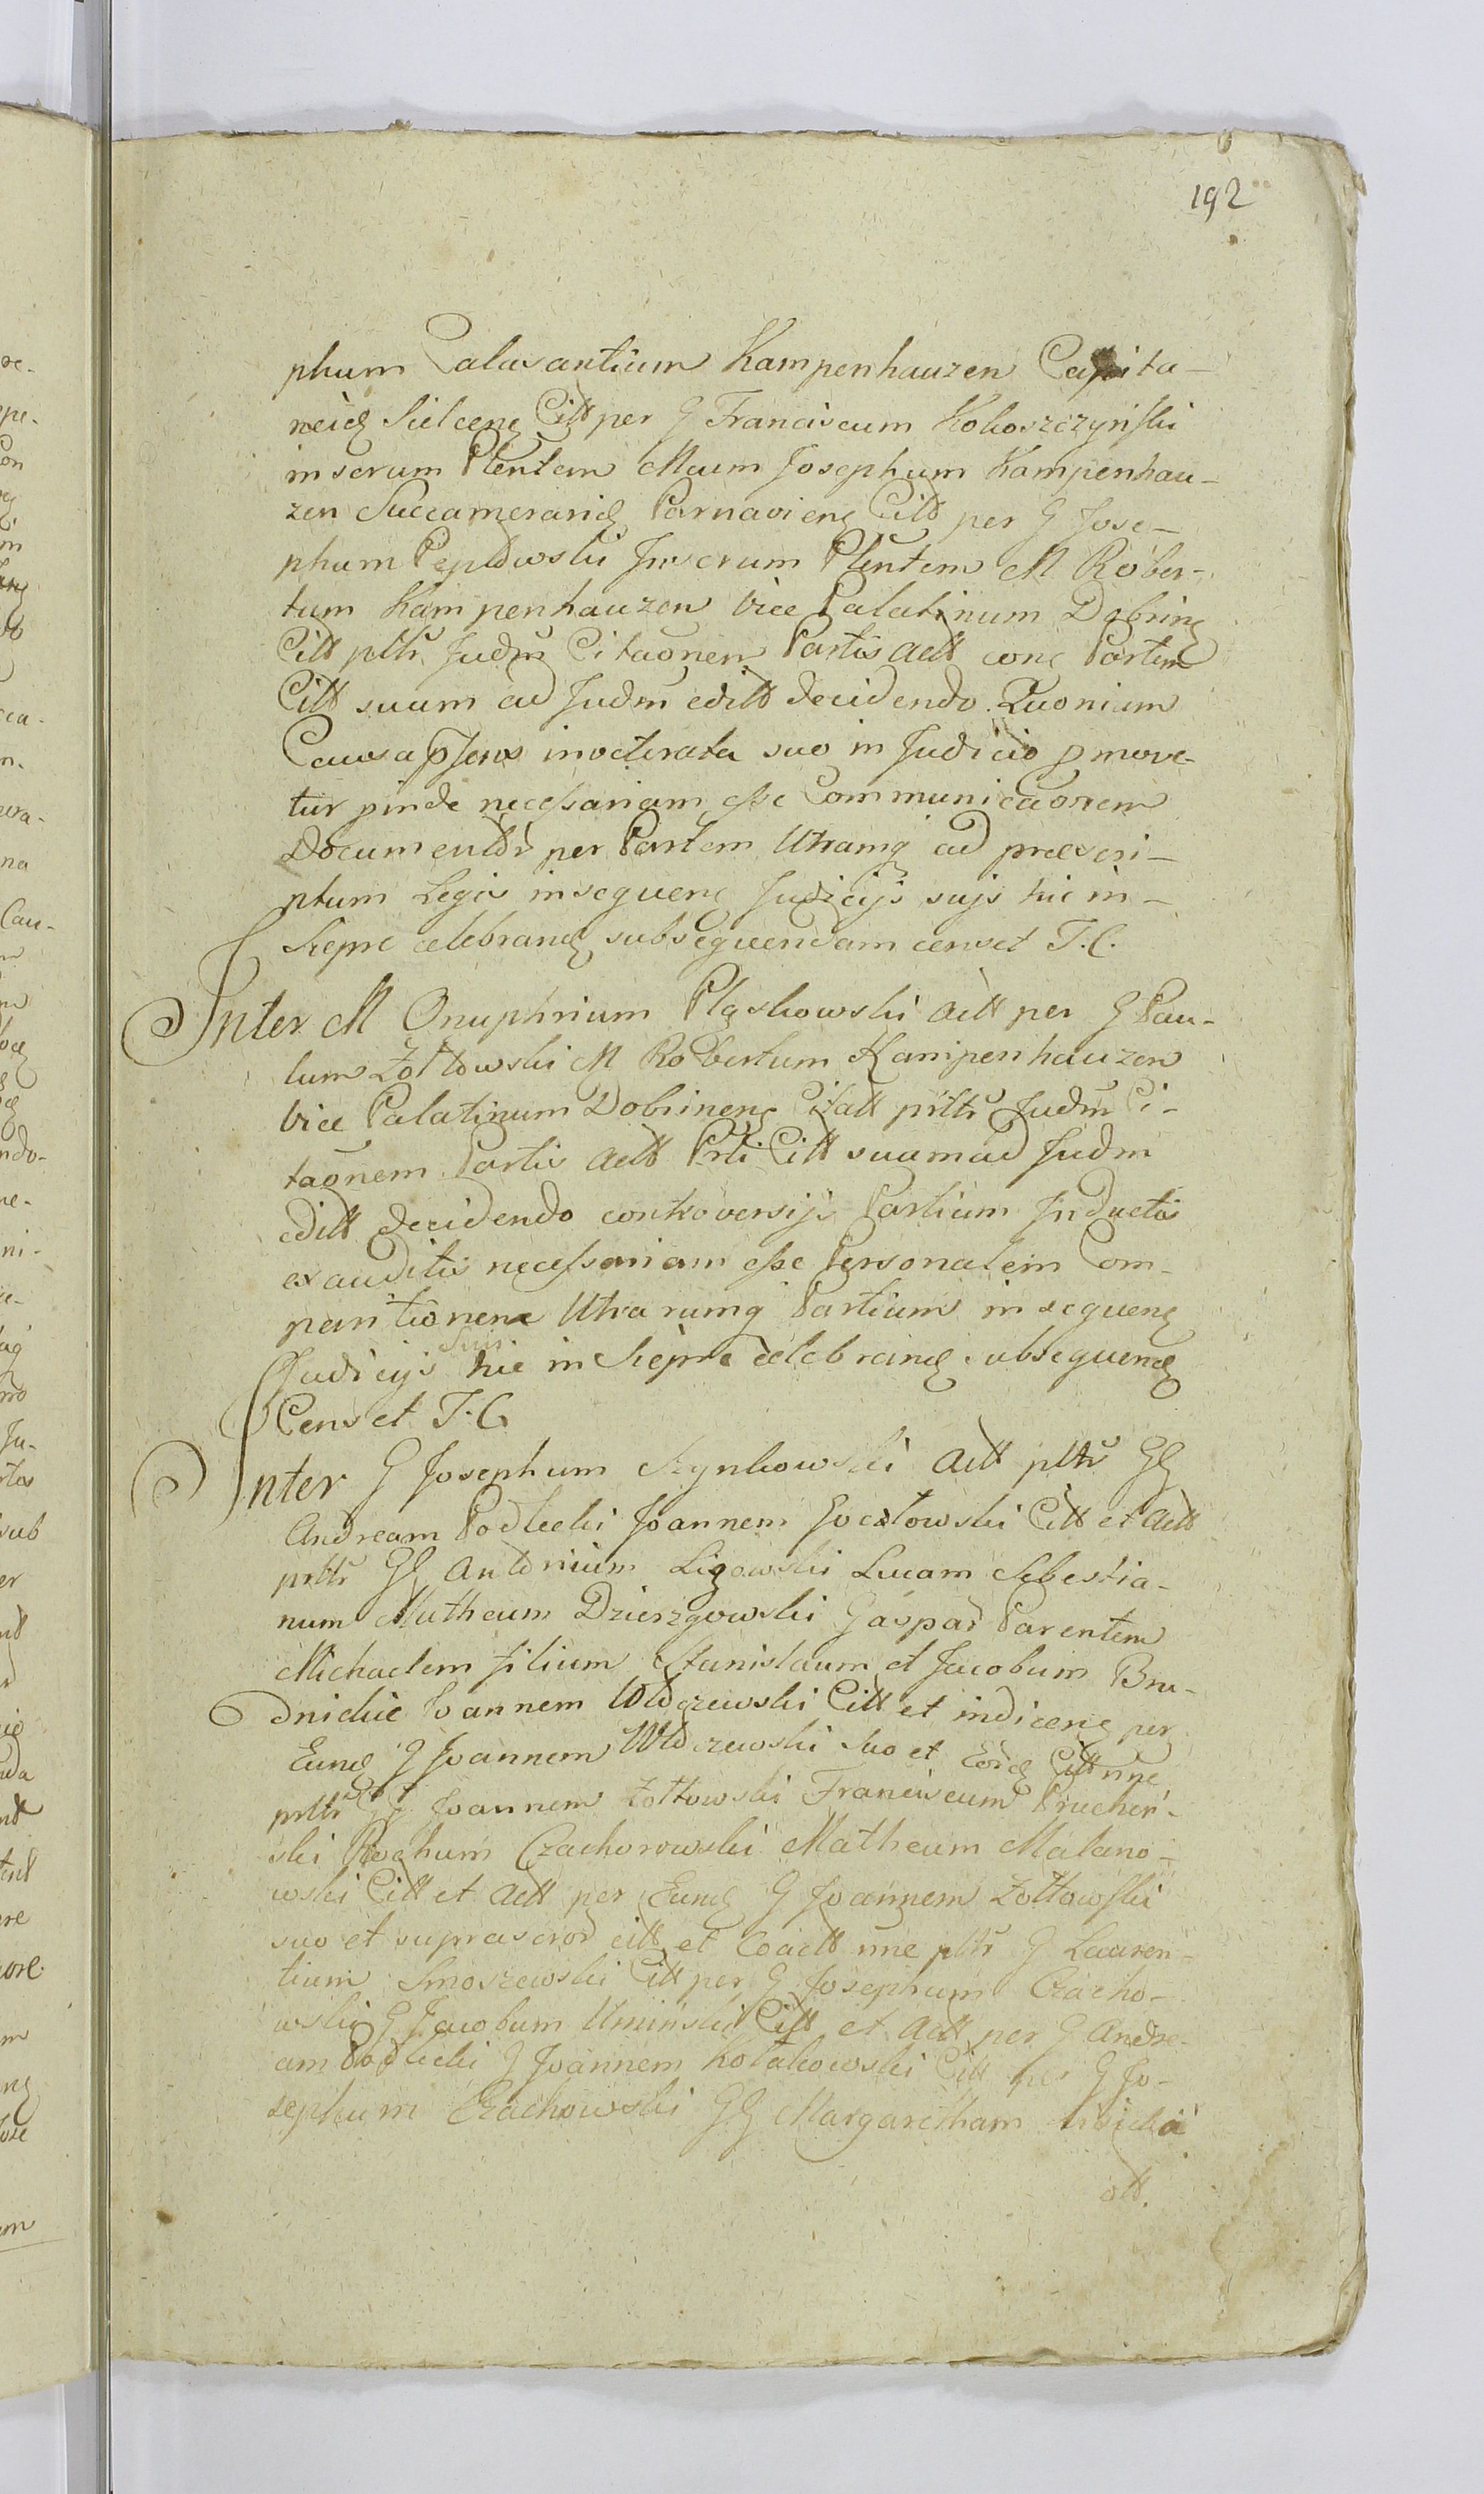 192
phum Calasantium Kampenhauzen Capita-
neid Sielcenṣ Citt per G Franciscum Kokoszczyński
inserum Plentem Maum Josephum Kampenhau-
zen Succamerarid Parnaviens Citt per G Jose-
phum Peplowski Inserum Plentem M Rober-
tum Kampenhauzen Vice Palatinum Dobrins
Citt pltr Judm Citaonem Partis Actt conc Partem
Citt suum ad Judm editt decidendo Quonium
Causa pſens inveterata suo in Judicio pmove-
tur pinde neceſsariam eſse Communicaonem
Documentor per Partem Utramq ad præscri-
ptum Legis insequens Judicijs sujs hic in
Siepre celebrand subsequendam censet T.C.
Inter M Onuphrium Pląskowski Actt per G Pau-
lum Żółtowski M Robertum Kampenhauzen
Vice Palatinum Dobrinens Citatt pltr Judm Ci-
taonem Partis Actt Prti Citt suam ad Judm
editt decidendo controversijs Partium Inductis
exauditis neceſsariam eſse Personalem Com-
paritionem Utrarumq Partium insequens
Judicijs Suis hic in Siepre celebrand subsequend
Censet T.C.
Inter G Josephum Szynkowski Actt pltr GG
Andream Podlecki Joannem Gocłowski Citt et Actt
pltr GG Antonium Ligowski Lucam Sebestia-
num Matheum Dzierzgowski Gaspar Parentem
Michaelem filium Stanislaum et Jacobum Bru-
dnickie Joannem Włoczewski Citt et indicens per
Eund G Joannem Włoczewski suo et Eord Citt nne
pltr GG Joannem Żółtowski Franciscum Prucheń-
ski Rochum Czachorowski Matheum Malano-
wski Citt et Actt per Eund G Joannem Żółtowski
suo et suprascror citt et Coactt nne pltr G Lauren-
tium Smoszewski Citt per G Josephum Czacho-
wski G Jacobum Umiński Citt et Actt per G Andre-
am Podlecki G Joannem Kołakowski Citt per G Jo-
sephum Czachowski GG Margaretham
olt.